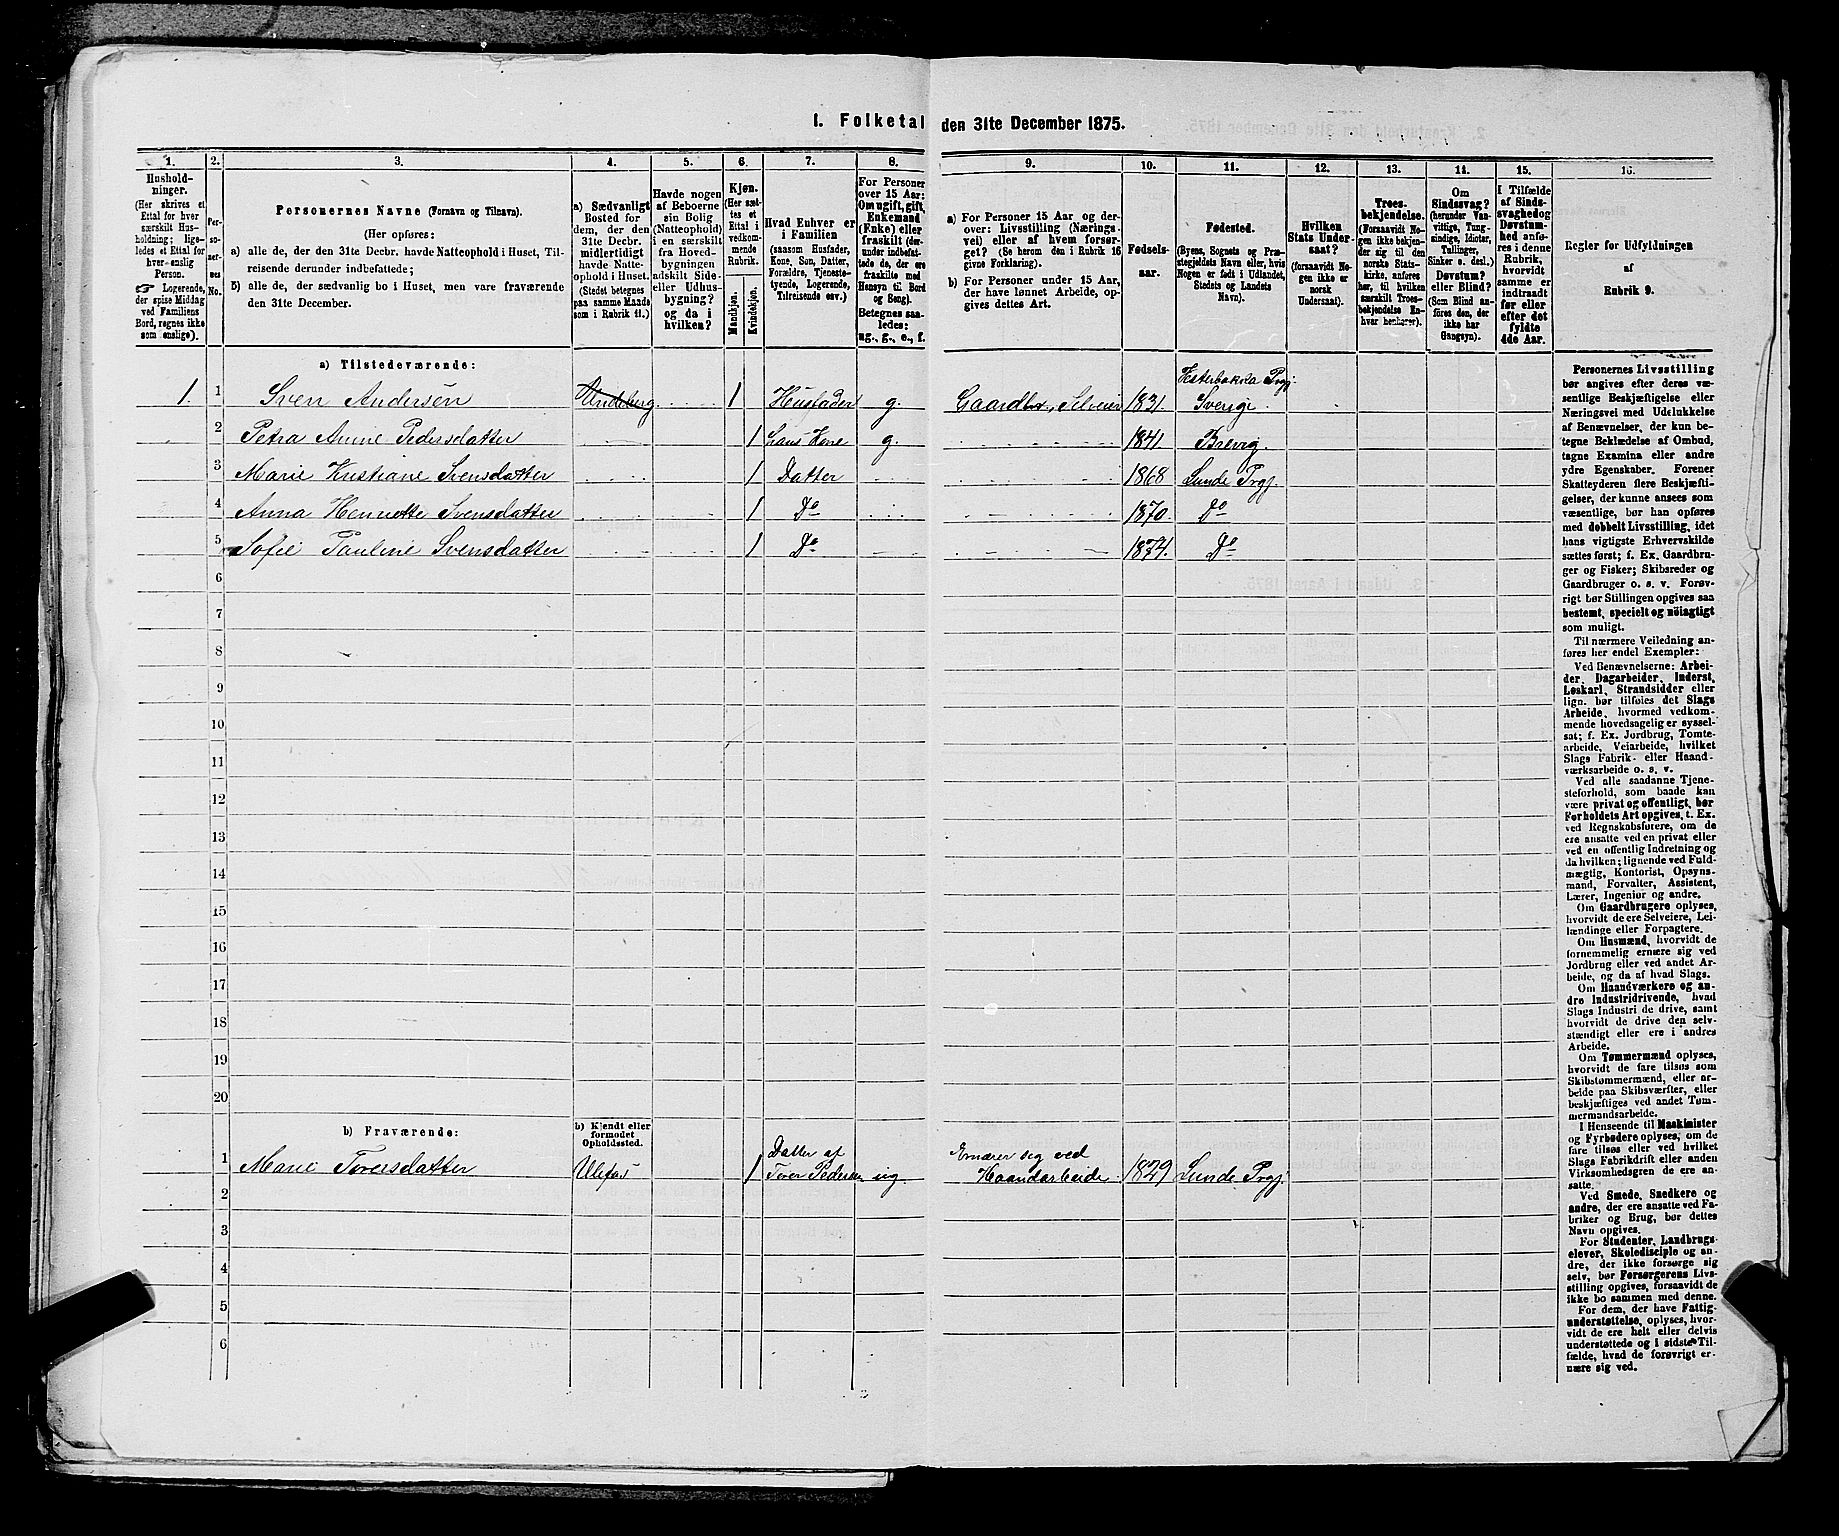 1. Folketal den 31te December 1875.
1.
Hushold-
ninger.
(Her skrives et
Ettal for hver
særskilt Hus-
holdning; lige-
ledes et Ettal for
hver enslig
Person.
☞ Logerende,
der spise Middag
ved Familiens
Bord, regnes ikke
som enslige).
2.
Per-
so-
ner-
nes
No.
3.
Personernes Navne (Fornavn og Tilnavn).
(Her opføres:
a) alle de, der den 31te Decbr. havde Natteophold i Huset, Til-
reisende derunder indbefattede;
b) alle de, der sædvanlig bo i Huset, men vare fraværende
den 31te December.
4.
a) Sædvanligt
Bosted for
dem, der den
31te Decbr.
midlertidigt
havde Natte-
ophold i Huset.
(Stedet betegnes
paa samme Maade
som i Rubrik 11.)
5.
Havde nogen
af Beboerne
sin Bolig
(Natteophold)
i en særskilt
fra Hoved-
bygningen
adskilt Side-
eller Udhus-
bygning?
og da i
hvilken?
6.
Kjøn.
(Her sæt-
tes et
Ettal i
vedkom-
mende
Rubrik.
Mandkjøn.
Kvindekjøn.
7.
Hvad Enhver er
i Familien
(saasom Husfader,
Kone, Søn, Datter,
Forældre, Tjeneste-
tyende, Logerende,
Tilreisende osv.)
8.
For Personer
over 15 Aar:
Om ugift, gift,
Enkemand
(Enke) eller
fraskilt (der-
under indbefat-
tede de, der ere
fraskilte med
Hensyn til Bord
og Seng).
Betegnes saa-
ledes:
ug., g., e., f.
9.
a) For Personer 15 Aar og der-
over: Livsstilling (Nærings-
vei) eller af hvem forsør-
get? (Se herom den i Rubrik 16
givne Forklaring).
b) For Personer under 15 Aar,
der have lønnet Arbeide, op-
gives dettes Art.
10.
Fødsels-
aar.
11.
Fødested.
(Byens, Sognets og Præ-
stegjeldets Navn eller, hvis
Nogen er født i Udlandet,
Stedets og Landets
Navn).
12.
Hvilken
Stats Under-
saat?
(forsaavidt No-
gen ikke er
norsk
Undersaat).
13.
Troes-
bekjendelse.
(Forsaavidt No-
gen ikke bekjen-
der sig til den
norske Stats-
kirke, anføres
her, til hvilken
særskilt Troes-
bekjendelse En-
hver henhører).
14.
Om
Sindssvag?
(herunder Van-
vittige, Tung-
sindige, Idioter,
Tullinger,
Sinker o. desl.)
Døvstum?
eller Blind?
(Som Blind an-
føres den, der
ikke har
Gangsyn).
15.
I Tilfælde
af Sinds-
svaghed og
Døvstum-
hed anfø-
res i denne
Rubrik,
hvorvidt
samme er
indtraadt
før eller
efter det
fyldte
4de Aar.
16.
Regler for Udfyldningen
af
Rubrik 9.
a) Tilstedeværende:
1. 1 Sven Andersen Undeberg. 1 Husfader g. Gaardbr., Selveier 1831. Vesterbakola Prgj. Sverige
2 Petra Anne Pedersdatter 1 hans Kone g. 1841 Brevig.
3 Marie Kristiane Svensdatter 1 Datter 1868 Lunde Prgj.
4 Anna Henriette Svensdatter 1 Do 1870. Do
5 Sofie Pauline Svensdatter 1 Do 1874. Do
6
7
8
9
10
11
12
13
14
15
16
17
18
19
20
b) Fraværende:
b) Kjendt eller
formodet
Opholdssted.
1 Marie Toversdatter Ulefos 1 Datter af Tover Pedersen ug. Ernærer sig ved Haandarbeide. 1829 Lunde Prgj.
2
3
4
5
6
Personernes Livsstilling
bør angives efter deres væ-
sentlige Beskjæftigelse eller
Næringsvei med Udelukkelse
af Benævnelser, der kun be-
tegne Beklædelse af Ombud,
tagne Examina eller andre
ydre Egenskaber. Forener
Skatteyderen flere Beskjæfti-
gelser, der kunne ansees som
væsentlige, bør han opføres
med dobbelt Livsstilling, idet
hans vigtigste Erhvervskilde
sættes først; f. Ex. Gaardbru-
ger og Fisker; Skibsreder og
Gaardbruger o. s. v. Forøv-
rigt bør Stillingen opgives saa
bestemt, specielt og nöiagtigt
som muligt.
Til nærmere Veiledning an-
føres her endel Exempler:
Ved Benævnelserne: Arbei-
der, Dagarbeider, Inderst,
Løskarl, Strandsidder eller
lign. bør tilføies det Slags
Arbeide, hvormed vedkom-
mende hovedsagelig er syssel-
sat; f. Ex. Jordbrug, Tomte-
arbeide, Veiarbeide, hvilket
Slags Fabrik- eller Haand-
værksarbeide o. s. v.
Ved alle saadanne Tjene-
steforhold, som baade kan
være privat og offentligt, bør
Forholdets Art opgives, t. Ex.
ved Regnskabsførere, om de
ere ansatte ved en privat eller
ved en offentlig Indretning og
da hvilken; lignende ved Fuld-
mægtig, Kontorist, Opsyns-
mand, Forvalter, Assistent,
Lærer, Ingeniør og andre.
Om Gaardbrugere oplyses,
hvorvidt de ere Selveiere, Lei-
lændinge eller Forpagtere.
Om Husmænd, hvorvidt de
fornemmelig ernære sig ved
Jordbrug eller ved andet Ar-
beide, og da af hvad Slags.
Om Haandværkere og an-
dre Industridrivende, hvad
Slags Industri de drive, samt
hvorvidt de drive den selv-
stændigt eller ere i andres
Arbeide.
Om Tømmermænd oplyses,
hvorvidt de fare tilsøs som
Skibstømmermænd, eller ar-
beide paa Skibsværfter, eller
beskjæftiges ved andet Tøm-
mermandsarbeide.
I Henseende til Maskinister
og Fyrbødere oplyses, om de
fare tilsøs eller ved hvilket
Slags Fabrikdrift eller anden
Virksomhedsgren de ere an-
satte.
Ved Smede, Snedkere og
andre, der ere ansatte ved Fa-
briker og Brug, bør dettes
Navn opgives.
For Studenter, Landbrugs-
elever, Skoledisciple og an-
dre, der ikke forsørge sig
selv, bør Forsørgerens Livs-
stilling opgives, forsaavidt de
ikke bo sammen med denne.
For dem, der have Fattig-
understøttelse, oplyses, hvor-
vidt de ere helt eller delvis
understøttede og i sidste Til-
fælde, hvad de forøvrigt er-
nære sig ved.